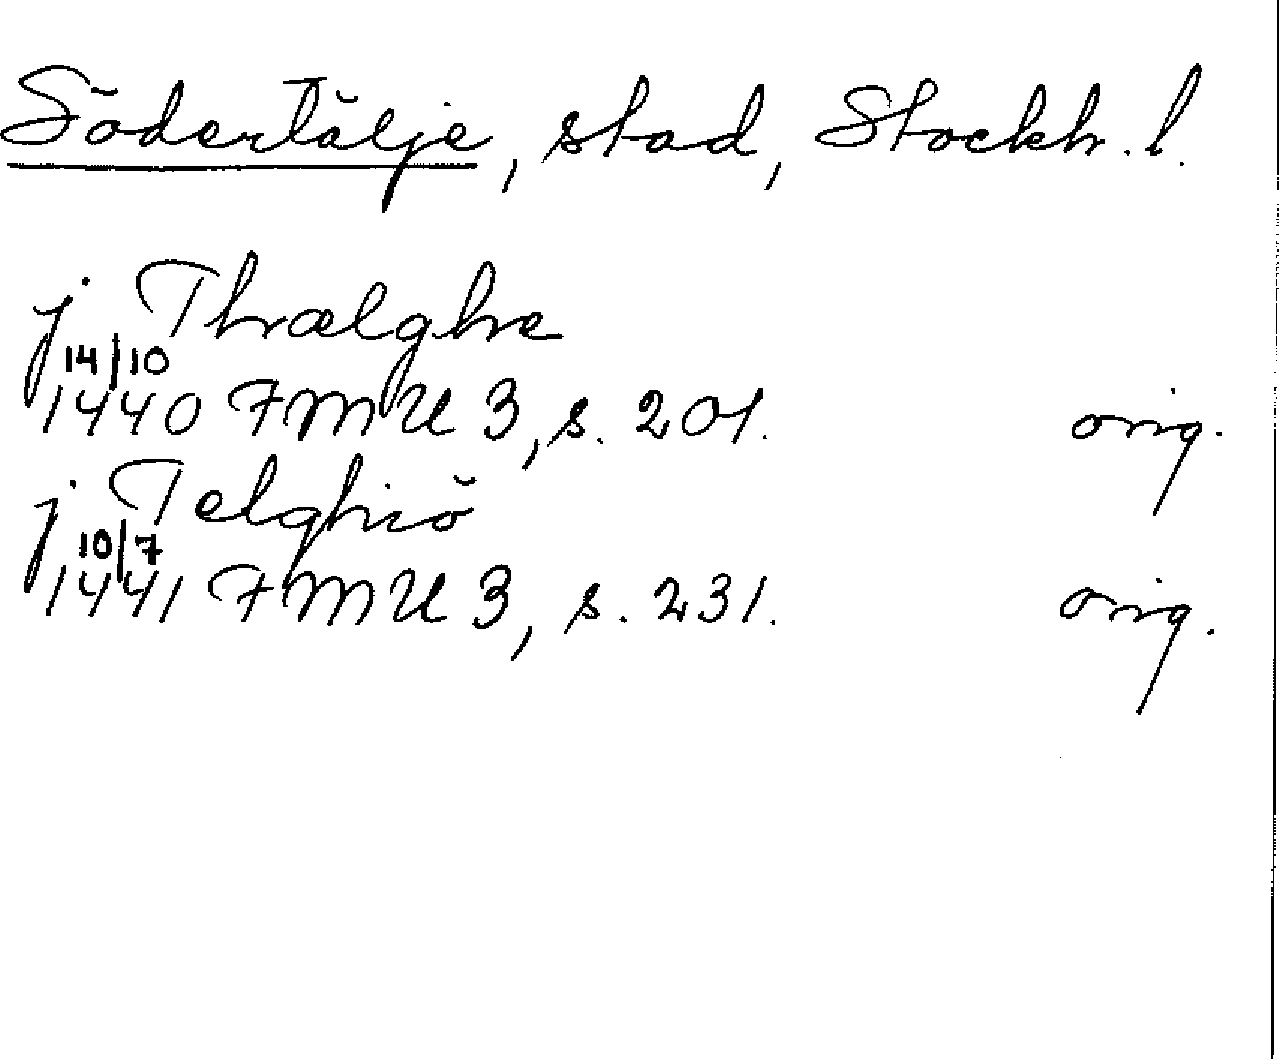 Södertälje, stad, Stockh. l.
j Thrælghe
14/10
1440 FMU 3, s. 201. orig.
j Telghiö
10/7
1441 FMU 3, s. 231. orig.